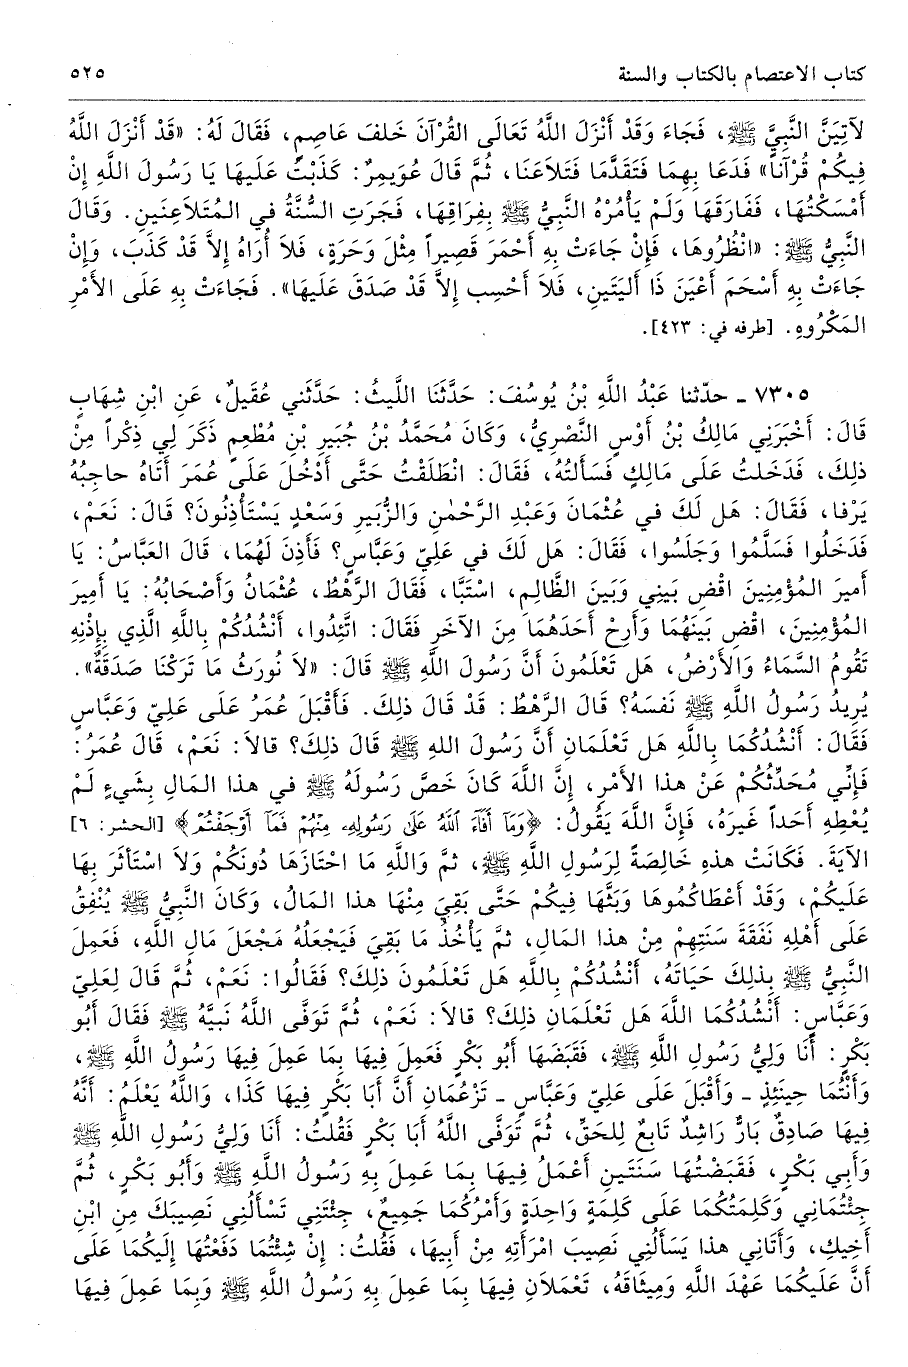 كتاب الاعتصام بالكتاب والسنة ٥٢٥
لآتِيَنَّ النَّبِيَّ ﷺ، فَجَاءَ وَقَدْ أَنْزَلَ اللَّهُ تَعَالَى القُرْآنَ خَلفَ عَاصِمٍ، فَقَالَ لَهُ: «قَدْ أَنْزَلَ اللَّهُ
فِيكُمْ قُرْآناً» فَدَعَا بِهِمَا فَتَقَدَّمَا فَتَلاَعَنَا، ثُمَّ قَالَ عُوَيمِرٌ: كَذَبْتُ عَلَيهَا يَا رَسُولَ اللَّهِ إِنْ
أَمْسَكْتُهَا، فَفَارَقَهَا وَلَمْ يَأْمُرْهُ النَّبِيُّ ﷺ بِفِرَاقِهَا، فَجَرَتِ السُّنَّةُ في المُتَلاَعِنَينِ. وَقَالَ
النَّبِيُّ ﷺ: «انْظُرُوهَا، فَإِنْ جَاءَتْ بِهِ أَحْمَرَ قَصِيراً مِثْلَ وَحَرَةٍ، فَلاَ أُرَاهُ إِلاَّ قَدْ كَذَبَ، وَإِنْ
جَاءَتْ بِهِ أَسْحَمَ أَعْيَنَ ذَا أَليَتَينِ، فَلاَ أَحْسِب إِلاَّ قَدْ صَدَقَ عَلَيهَا». فَجَاءَتْ بِهِ عَلَى الأَمْرِ
المَكْرُوهِ. [طرفه في: ٤٢٣].
٧٣٠٥ ـ حدّثنا عَبْدُ اللَّهِ بْنُ يُوسُفَ: حَدَّثَنَا اللَّيثُ: حَدَّثَنِي عُقَيلٌ، عَنِ ابْنِ شِهَابٍ
قَالَ: أَخْبَرَنِي مَالِكُ بْنُ أَوْسٍ النَّصْرِيُّ، وَكَانَ مُحَمَّدُ بْنُ جُبَيرِ بْنِ مُطْعِمٍ ذَكَرَ لِي ذِكْراً مِنْ
ذلِكَ، فَدَخَلتُ عَلَى مَالِكٍ فَسَأَلتُهُ، فَقَالَ: انْطَلَقْتُ حَتَّى أَدْخُلَ عَلَى عُمَرَ أَتَاهُ حاجِبُهُ
يَرْفا، فَقَالَ: هَل لَكَ في عُثْمَانَ وَعَبْدِ الرَّحْمٰنِ وَالزُّبَيرِ وَسَعْدٍ يَسْتَأْذِنُونَ؟ قَالَ: نَعَمْ،
فَدَخَلُوا فَسَلَّمُوا وَجَلَسُوا، فَقَالَ: هَل لَكَ في عَلِيٍّ وَعَبَّاسٍ؟ فَأَذِنَ لَهُمَا، قَالَ العَبَّاسُ: يَا
أَمِيرَ المُؤْمِنِينَ اقْضِ بَينِي وَبَينَ الظَّالِمِ، اسْتَبَّا، فَقَالَ الرَّهْطُ، عُثْمَانُ وَأَصْحَابُهُ: يَا أَمِيرَ
المُؤْمِنِينَ، اقْضِ بَينَهُمَا وَأَرِحْ أَحَدَهُمَا مِنَ الآخَرِ فَقَالَ: اتَّئِدُوا، أَنْشُدُكُمْ بِاللَّهِ الَّذِي بِإِذْنِهِ
تَقُومُ السَّمَاءُ وَالأَرْضُ، هَل تَعْلَمُونَ أَنَّ رَسُولَ اللَّهِ ﷺ قَالَ: «لاَ نُورَثُ مَا تَرَكْنَا صَدَقَةٌ».
يُرِيدُ رَسُولُ اللَّهِ ﷺ نَفسَهُ؟ قَالَ الرَّهْطُ: قَدْ قَالَ ذلِكَ. فَأَقْبَلَ عُمَرُ عَلَى عَلِيٍّ وَعَبَّاسٍ
فَقَالَ: أَنْشُدُكُمَا بِاللَّهِ هَل تَعْلَمَانِ أَنَّ رَسُولَ اللهِ ﷺ قَالَ ذلِكَ؟ قالاَ: نَعَمْ، قَالَ عُمَرُ:
فَإِنِّي مُحَدِّثُكُمْ عَنْ هذا الأَمْرِ، إِنَّ اللَّهَ كَانَ خَصَّ رَسُولَهُ ﷺ في هذا المَالِ بِشَيءٍ لَمْ
يُعْطِهِ أَحَداً غَيرَهُ، فَإِنَّ اللَّهَ يَقُولُ: ﴿وَمَآ أَفَآءَ ٱللَّهُ عَلَىٰ رَسُولِهِۦ مِنْهُمْ فَمَآ أَوْجَفْتُمْ﴾ [الحشر: ٦]
الآيَةَ. فَكَانَتْ هذهِ خالِصَةً لِرَسُولِ اللَّهِ ﷺ، ثمَّ وَاللَّهِ مَا احْتَازَهَا دُونَكُمْ وَلاَ اسْتَأْثَرَ بِهَا
عَلَيكُمْ، وَقَدْ أَعْطَاكُمُوهَا وَبَثَّهَا فِيكُمْ حَتَّى بَقِيَ مِنْهَا هذا المَالُ، وَكَانَ النَّبِيُّ ﷺ يُنْفِقُ
عَلَى أَهْلِهِ نَفَقَةَ سَنَتِهِمْ مِنْ هذا المَالِ، ثمَّ يَأْخُذُ مَا بَقِيَ فَيَجْعَلُهُ مَجْعَلَ مَالِ اللَّهِ، فَعَمِلَ
النَّبِيُّ ﷺ بِذلِكَ حَيَاتَهُ، أَنْشُدُكُمْ بِاللَّهِ هَل تَعْلَمُونَ ذلِكَ؟ فَقَالُوا: نَعَمْ، ثُمَّ قَالَ لِعَلِيٍّ
وَعَبَّاسٍ: أَنْشُدُكُمَا اللَّهَ هَل تَعْلَمَانِ ذلِكَ؟ قالاَ: نَعَمْ، ثُمَّ تَوَفَّى اللَّهُ نَبِيَّهُ ﷺ فَقَالَ أَبُو
بَكْرٍ: أَنَا وَلِيُّ رَسُولِ اللَّهِ ﷺ، فَقَبَضَهَا أَبُو بَكْرٍ فَعَمِلَ فِيهَا بِمَا عَمِلَ فِيهَا رَسُولُ اللَّهِ ﷺ،
وَأَنْتُمَا حِينَئِذٍ ـ وَأَقْبَلَ عَلَى عَلِيٍّ وَعَبَّاسٍ ـ تَزْعُمَانِ أَنَّ أَبَا بَكْرٍ فِيهَا كَذَا، وَاللَّهُ يَعْلَمُ: أَنَّهُ
فِيهَا صَادِقٌ بَارٌّ رَاشِدٌ تَابِعٌ لِلحَقِّ، ثمَّ تَوَفَّى اللَّهُ أَبَا بَكْرٍ فَقُلتُ: أَنَا وَلِيُّ رَسُولِ اللَّهِ ﷺ
وَأَبِي بَكْرٍ، فَقَبَضْتُهَا سَنَتَينِ أَعْمَلُ فِيهَا بِمَا عَمِلَ بِهِ رَسُولُ اللَّهِ ﷺ وَأَبُو بَكْرٍ، ثُمَّ
جِئْتُمَانِي وَكَلِمَتُكُمَا عَلَى كَلِمَةٍ وَاحِدَةٍ وَأَمْرُكُمَا جَمِيعٌ، جِئْتَنِي تَسْأَلُنِي نَصِيبَكَ مِنِ ابْنِ
أَخِيكِ، وَأَتَانِي هذا يَسَأَلُنِي نَصِيبَ امْرَأَتِهِ مِنْ أَبِيهَا، فَقُلتُ: إِنْ شِئْتُمَا دَفَعْتُهَا إِلَيكُمَا عَلَى
أَنَّ عَلَيكُمَا عَهْدَ اللَّهِ وَمِيثَاقَهُ، تَعْمَلاَنِ فِيهَا بِمَا عَمِلَ بِهِ رَسُولُ اللَّهِ ﷺ وَبِمَا عَمِلَ فِيهَا